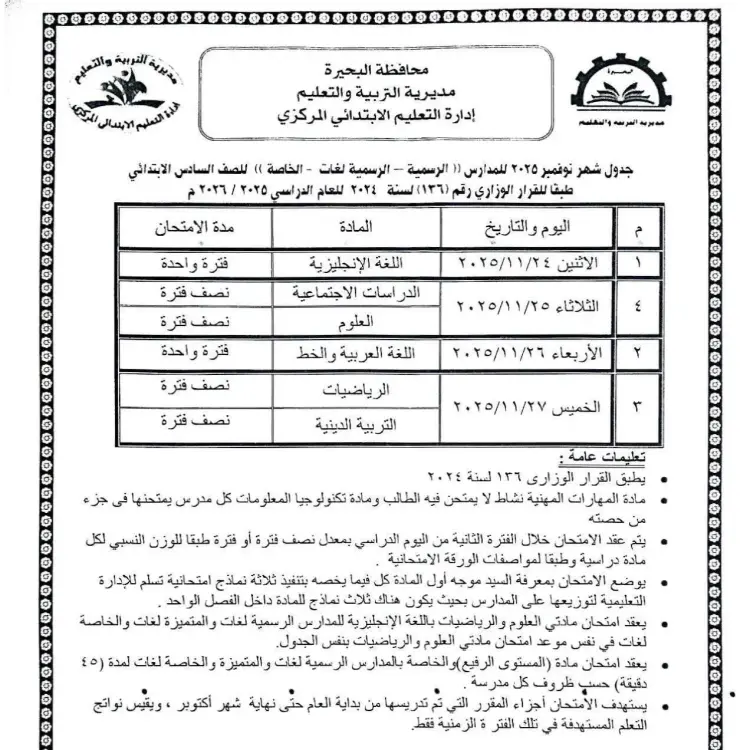 مديرية التربية والتعليم
إدارة التعليم الابتدائي المركزي
محافظة البحيرة
مديرية التربية والتعليم
إدارة التعليم الابتدائي المركزي
البحيرة
مديرية التربية والتعليم
جدول شهر نوفمبر ٢٠٢٥ للمدارس (( الرسمية – الرسمية لغات - الخاصة )) للصف السادس الابتدائي
طبقا للقرار الوزاري رقم (١٣٦) لسنة ٢٠٢٤ للعام الدراسي ٢٠٢٥ / ٢٠٢٦ م
م اليوم والتاريخ المادة مدة الامتحان
١ الاثنين ٢٠٢٥/١١/٢٤ اللغة الإنجليزية فترة واحدة
٤ الثلاثاء ٢٠٢٥/١١/٢٥ الدراسات الاجتماعية نصف فترة
العلوم نصف فترة
٢ الأربعاء ٢٠٢٥/١١/٢٦ اللغة العربية والخط فترة واحدة
٣ الخميس ٢٠٢٥/١١/٢٧ الرياضيات نصف فترة
التربية الدينية نصف فترة
تعليمات عامة :
• يطبق القرار الوزارى ١٣٦ لسنة ٢٠٢٤
• مادة المهارات المهنية نشاط لا يمتحن فيه الطالب ومادة تكنولوجيا المعلومات كل مدرس يمتحنها فى جزء
من حصته
• يتم عقد الامتحان خلال الفترة الثانية من اليوم الدراسي بمعدل نصف فترة أو فترة طبقا للوزن النسبي لكل
مادة دراسية وطبقا لمواصفات الورقة الامتحانية .
• يوضع الامتحان بمعرفة السيد موجه أول المادة كل فيما يخصه بتنفيذ ثلاثة نماذج امتحانية تسلم للإدارة
التعليمية لتوزيعها على المدارس بحيث يكون هناك ثلاث نماذج للمادة داخل الفصل الواحد .
• يعقد امتحان مادتي العلوم والرياضيات باللغة الإنجليزية للمدارس الرسمية لغات والمتميزة لغات والخاصة
لغات في نفس موعد امتحان مادتي العلوم والرياضيات بنفس الجدول.
• يعقد امتحان مادة (المستوى الرفيع)والخاصة بالمدارس الرسمية لغات والمتميزة والخاصة لغات لمدة (٤٥
دقيقة) حسب ظروف كل مدرسة .
• يستهدف الأمتحان أجزاء المقرر التي تم تدريسها من بداية العام حتى نهاية شهر أكتوبر ، ويقيس نواتج
التعلم المستهدفة في تلك الفترة الزمنية فقط.